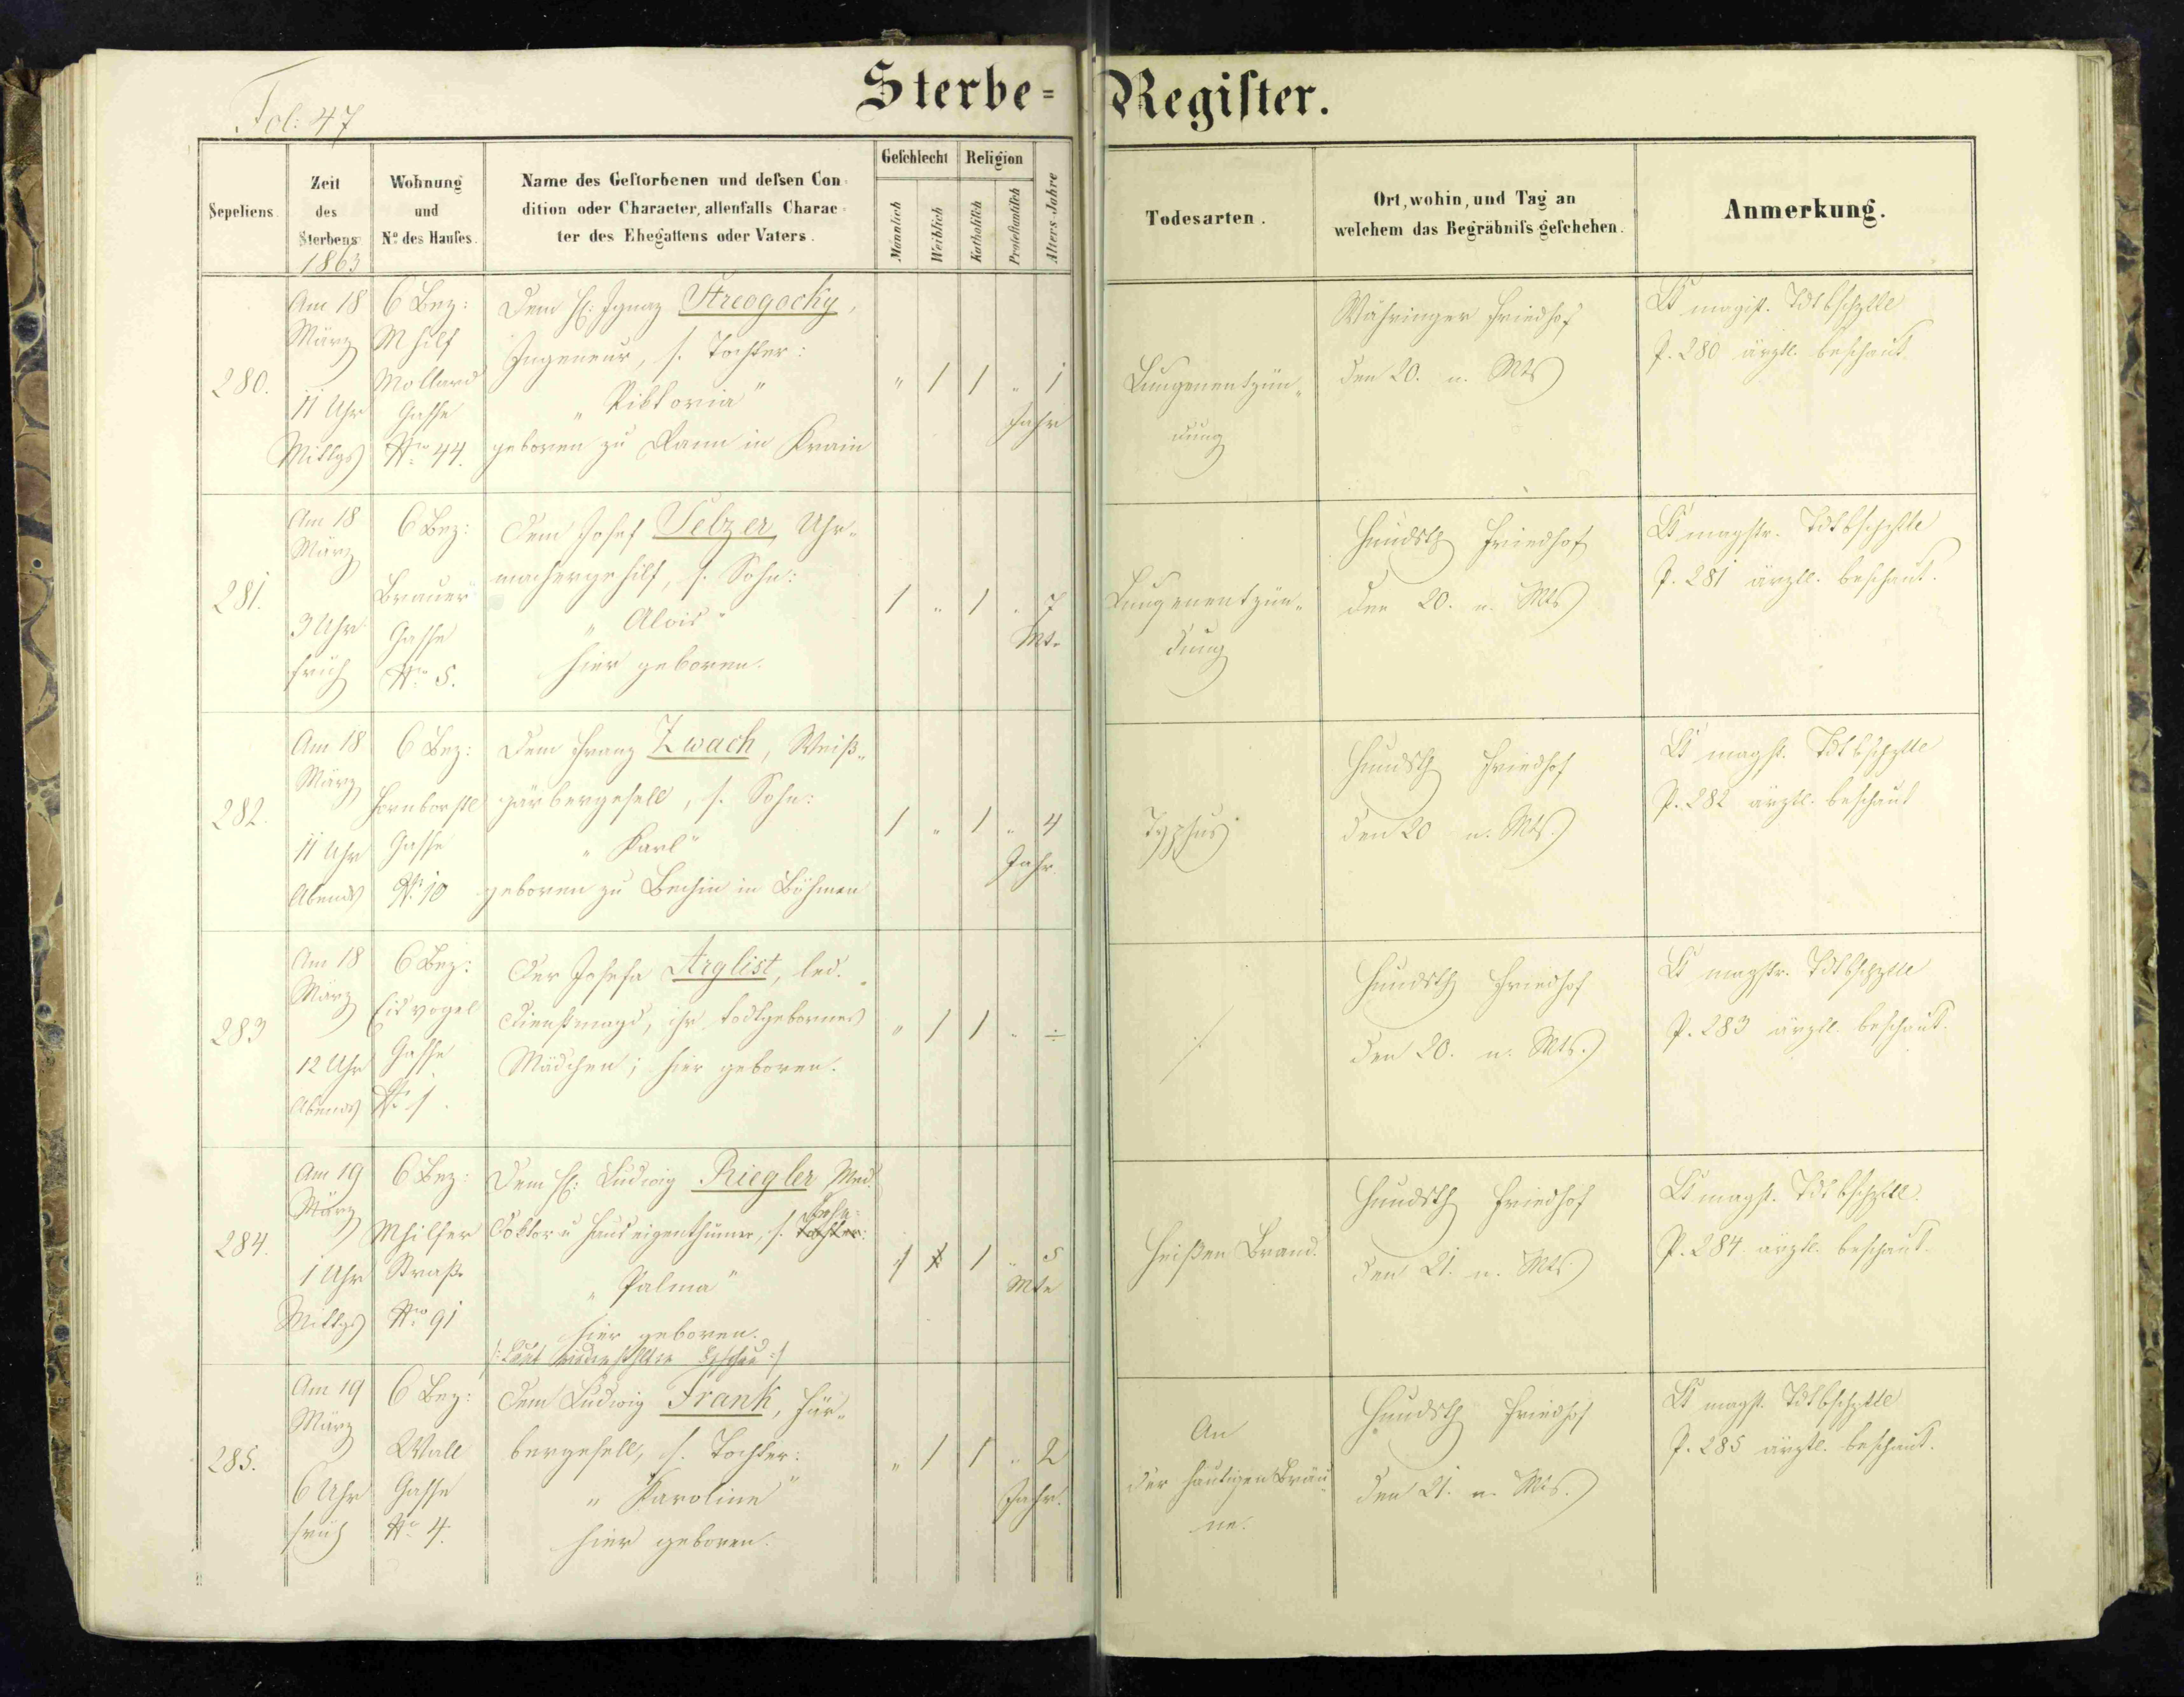 Fol: 47
Sterbe=Regiſter.
Sepeliens.
Zeit
des
Sterbens
1863
Wohnung
und
Nº des Hauſes.
Name des Geſtorbenen und deſsen Con-
dition oder Character, allenfalls Charac-
ter des Ehegattens oder Vaters.
Geſchlecht
Männlich
Weiblich
Religion
Katholiſch
Proteſtantiſch
Alters-Jahre
Todesarten.
Ort, wohin, und Tag an
welchem das Begräbniſs geſchehen.
Anmerkung.
280.
Am 18
März
11 Uhr
Mittgs
6 Bez:
Mhilf
Mollard
Gasse
Nro 44.
Dem H: Ignaz Streogocky,
Ingeneur, s. Tochter:
"Viktoria"
geboren zu Rann in Krain
" 1 1 " 1
Jahr
Lungenentzün-
dung
Währinger Friedhof
den 20. n. Mts
Lt magist. Tdtbschzttl
P. 280 ärztl. beschaut.
281.
Am 18
März
3 Uhr
früh
6 Bez:
Brauer
Gasse
Nro 5.
Dem Josef Selzer, Uhr-
machergehilf, s. Sohn:
"Alois"
hier geboren.
1 " 1 " 7
Mt.
Lungenentzün-
dung
Hundsth Friedhof
den 20. n. Mts
Lt magstr. Tdtbschzttl
P. 281 ärztl. beschaut.
282.
Am 18
März
11 Uhr
Abends
6 Bez:
Hornbostl
Gasse
Nr. 10
Dem Franz Zwach, Weiß-
gärbergesell, s. Sohn:
"Karl"
geboren zu Bechin in Böhmen
1 " 1 " 4
Jahr
Typhus
Hundsth Friedhof
den 20 n. Mts.
Lt magst. Tdtbschzttl
P. 282 ärztl. beschaut
283
Am 18
März
12 Uhr
Abends
6 Bez:
Eisvogel
Gasse
Nr. 1.
Der Josefa Arglist, led.
Dienstmagd, ihr todtgebornes
Mädchen; hier geboren.
" 1 1 " ÷
Hundsth Friedhof
den 20. n. Mts.
Lt magstr. Tdtbschzttl
P. 283 ärztl. beschaut.
284.
Am 19
März
1 Uhr
Mittgs
6 Bez:
Mhilfer
Straße
Nro 91
Dem H: Ludwig Riegler Med.
Doktor u Hauseigenthümer, s. Tochter: Sohn:
"Palma"
hier geboren.
1 1 1 " 5
Mte
Heißen Brand.
Hundsth Friedhof
den 21. n. Mts
Lt magst. Tdtbschzttl.
P. 284 ärztl. beschaut.
285.
Am 19
März
6 Uhr
früh
6 Bez:
Wall
Gasse
Nr. 4.
Dem Ludwig Frank, Fär-
bergesell, s. Tochter:
"Karoline"
hier geboren.
" 1 1 " 2
Jahr.
An
der häutigen Bräu-
ne.
Hundsth Friedhof
den 21. n. Mts.
Lt magst. Tdtbschzttl
P. 285 ärztl. beschaut.